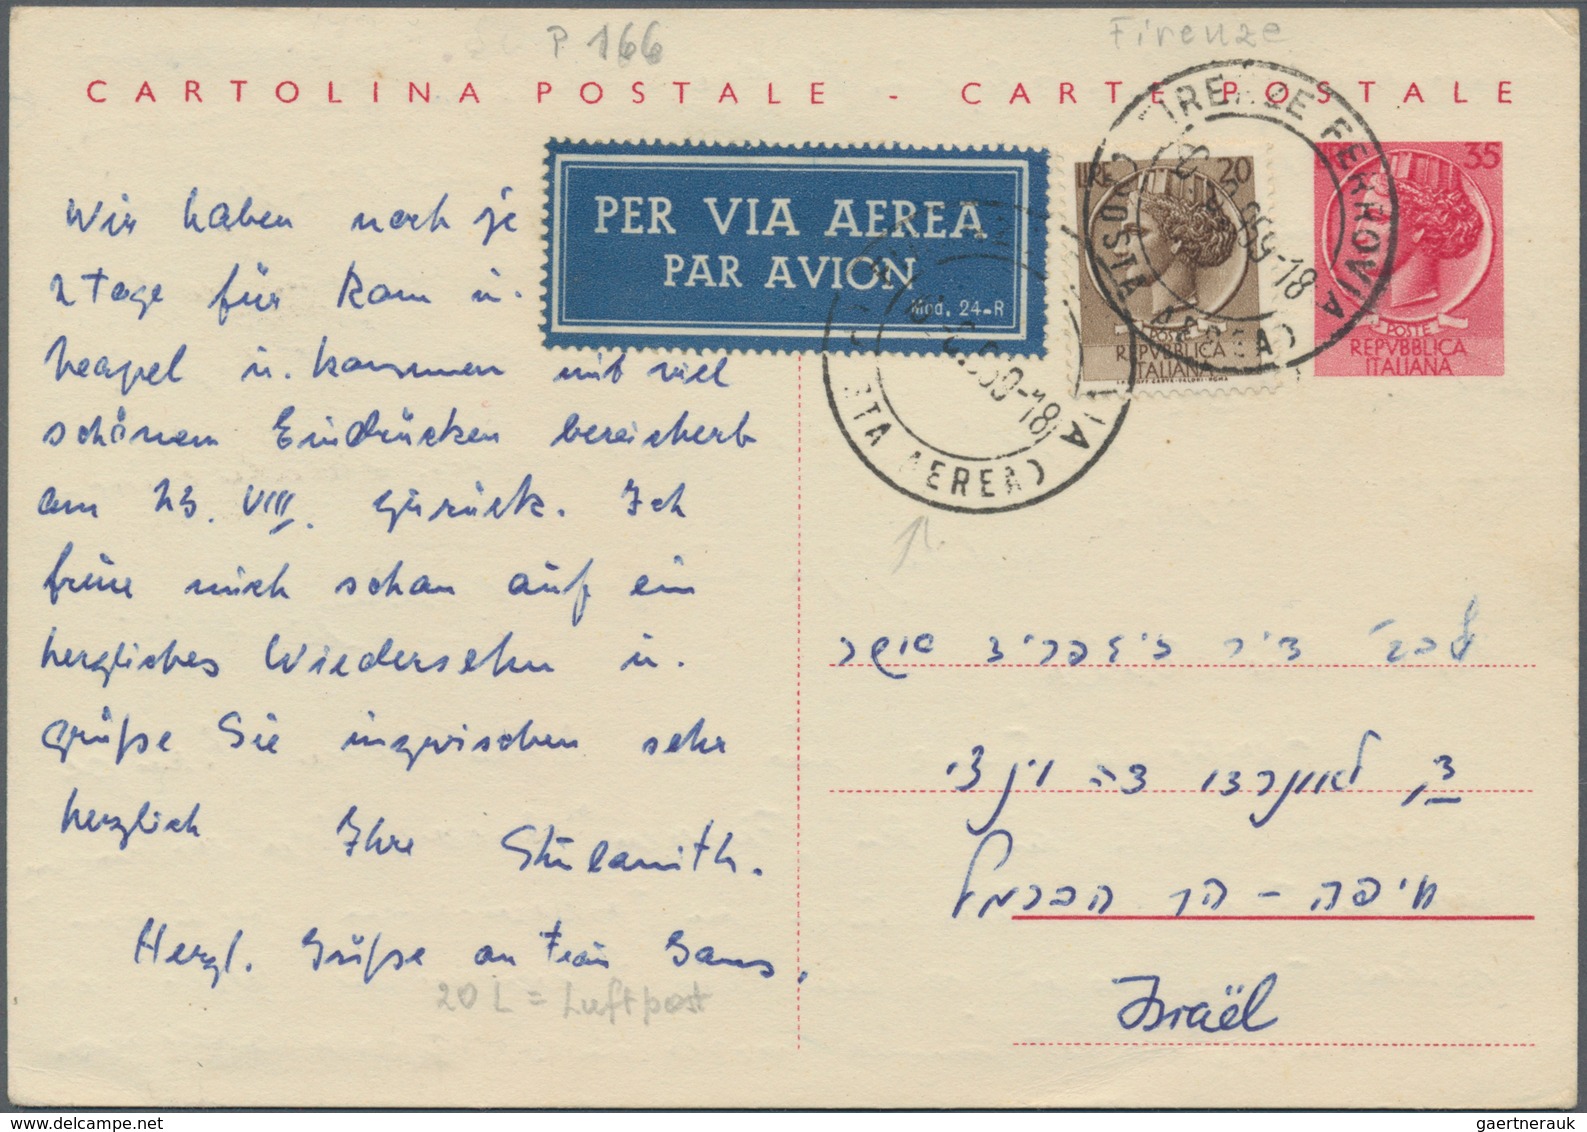 P 166
Firenze
CARTOLINA POSTALE - CARTE POSTALE
PER VIA AEREA
PAR AVION
Mod. 24-R
LIRE 20
POSTE
REPVBBLICA
ITALIANA
35
POSTE
REPVBBLICA
ITALIANA
FERROVIA
(POSTA AEREA)
69-18
Wir haben noch je
2 Tage für Rom u.
Neapel u. kommen mit viel
schönen Eindrücken bereichert
am 23. VIII. zurück. Ich
freue mich schon auf ein
herzliches Wiedersehn u.
grüße Sie inzwischen sehr
herzlich Ihre Shulamith.
Herzl. Grüße an Frau Gans.
20 L = Luftpost
זיגפריד
לאונרדו דה וינצי
חיפה - הר הכרמל
Israël
gaertnerauk